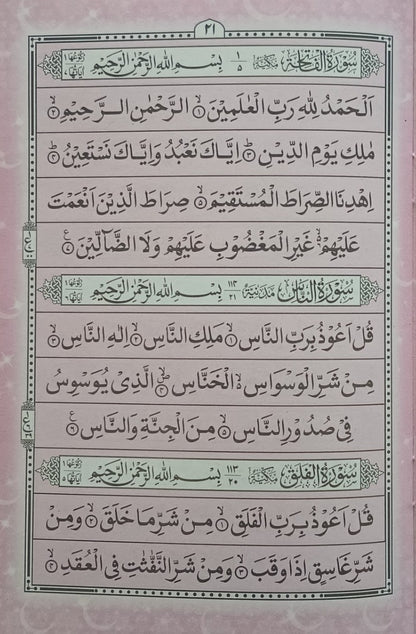 ٢١
سُوْرَةُ الْفَاتِحَةِ مَكِّيَّةٌ ١ ٥ بِسْمِ اللهِ الرَّحْمٰنِ الرَّحِيْمِ رُكُوْعُهَا ١ اٰيَاتُهَا ٧
اَلْحَمْدُ لِلّٰهِ رَبِّ الْعٰلَمِيْنَ ۙ‏﴿١﴾ الرَّحْمٰنِ الرَّحِيْمِ ۙ‏﴿٢﴾
مٰلِكِ يَوْمِ الدِّيْنِ ؕ‏﴿٣﴾ اِيَّاكَ نَعْبُدُ وَاِيَّاكَ نَسْتَعِيْنُ ؕ‏﴿٤﴾
اِهْدِنَا الصِّرَاطَ الْمُسْتَقِيْمَ ۙ‏﴿٥﴾ صِرَاطَ الَّذِيْنَ اَنْعَمْتَ
عَلَيْهِمْ ۙ۬ غَيْرِ الْمَغْضُوْبِ عَلَيْهِمْ وَلَا الضَّآلِّيْنَ ﴿٧﴾
سُوْرَةُ النَّاسِ مَدَنِيَّةٌ ١١٤ ٢١ بِسْمِ اللهِ الرَّحْمٰنِ الرَّحِيْمِ رُكُوْعُهَا ١ اٰيَاتُهَا ٦
قُلْ اَعُوْذُ بِرَبِّ النَّاسِ ۙ‏﴿١﴾ مَلِكِ النَّاسِ ۙ‏﴿٢﴾ اِلٰهِ النَّاسِ ۙ‏﴿٣﴾
مِنْ شَرِّ الْوَسْوَاسِ ۙ۬ الْخَنَّاسِ ۪ۙ‏﴿٤﴾ الَّذِيْ يُوَسْوِسُ
فِيْ صُدُوْرِ النَّاسِ ۙ‏﴿٥﴾ مِنَ الْجِنَّةِ وَالنَّاسِ ﴿٦﴾
سُوْرَةُ الْفَلَقِ مَكِّيَّةٌ ١١٣ ٢٠ بِسْمِ اللهِ الرَّحْمٰنِ الرَّحِيْمِ رُكُوْعُهَا ١ اٰيَاتُهَا ٥
قُلْ اَعُوْذُ بِرَبِّ الْفَلَقِ ۙ‏﴿١﴾ مِنْ شَرِّ مَا خَلَقَ ۙ‏﴿٢﴾ وَمِنْ
شَرِّ غَاسِقٍ اِذَا وَقَبَ ۙ‏﴿٣﴾ وَمِنْ شَرِّ النَّفّٰثٰتِ فِي الْعُقَدِ ۙ‏﴿٤﴾